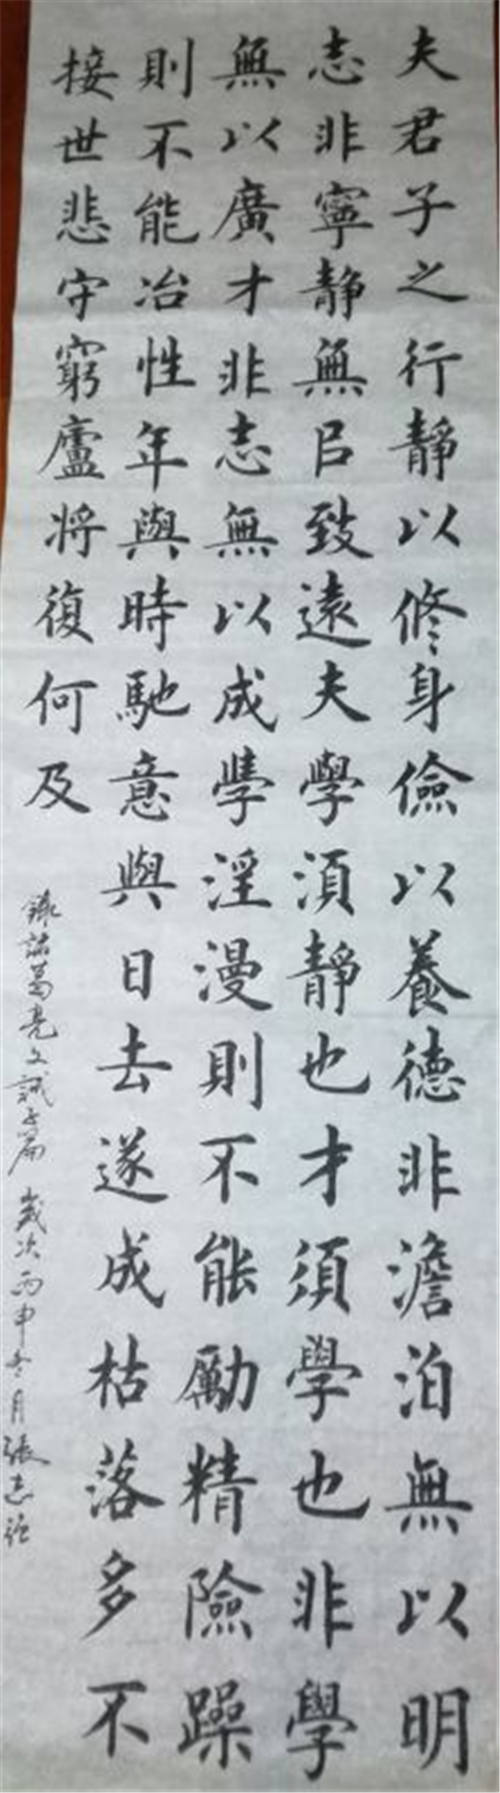 夫君子之行靜以修身儉以養德非澹泊無以明
志非寧静無㠯致遠夫學須靜也才須學也非學
無以廣才非志無以成學淫漫則不能勵精險躁
則不能冶性年與時馳意與日去遂成枯落多不
接世悲守窮廬將復何及
錄諸葛亮文誡子篇 歲次丙申冬月張志